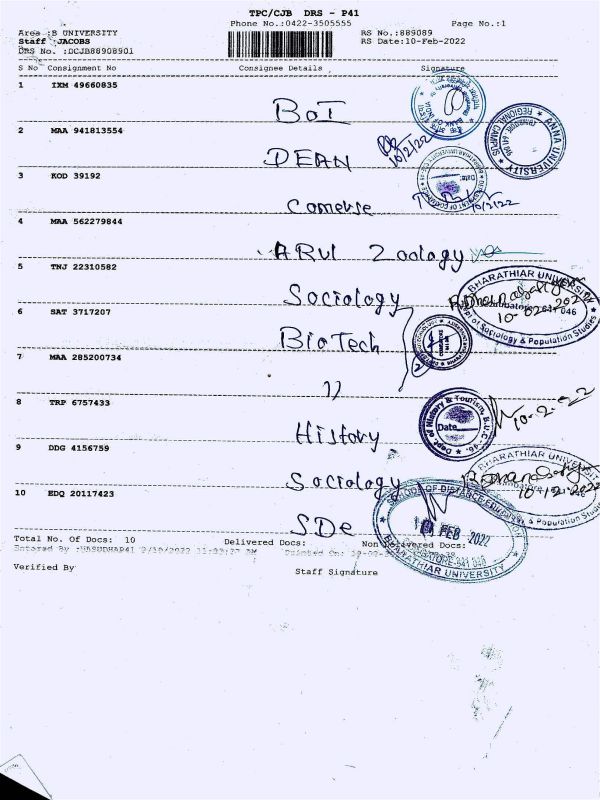 TPC/CJB DRS - P41
Phone No.:0422-3505555
Page No.:1
Area :B UNIVERSITY
RS No.:889089
Staff :JACOBS
RS Date:10-Feb-2022
DRS No. :DCJB88908901
S No Consignment No Consignee Details Signature
1 IXM 49660835
BOI
2 MAA 941813554
10/2/22
ANNA UNIVERSITY
REGIONAL CAMPUS
DEAN
3 KOD 39192
Date:
10/2/22
Comerse
4 MAA 562279844
ARUL Zoology
5 TNJ 22310582
BHARATHIAR UNIVERSITY
10-02-2022
641 046
Dept of Sociology & Population Studies
Sociology
6 SAT 3717207
BioTech
7 MAA 285200734
11
8 TRP 6757433
Dept of History & Tourism, B.U.C-46.
Date
10-2-22
History
9 DDG 4156759
BHARATHIAR UNIVERSITY
& Population Studies
Sociology
10 EDQ 20117423
SCHOOL OF DISTANCE EDUCATION
FEB 2022
COIMBATORE-641 046
BHARATHIAR UNIVERSITY
SDe
Total No. Of Docs: 10 Delivered Docs: Non Delivered Docs:
Entered By :VASUDHAP41 2/10/2022 Printed On:
Verified By
Staff Signature